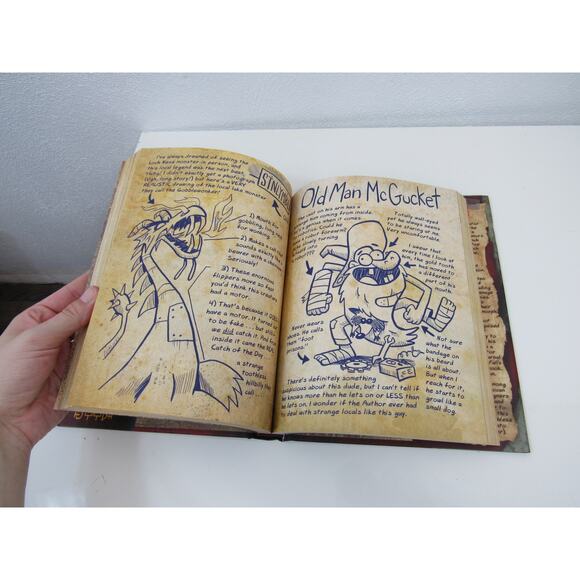 I've always dreamed of seeing the
Loch Ness monster in person, and
this local legend was the next best
thing! I didn't exactly get a photograph
(Ugh, long story!) but here's a VERY
REALISTIC drawing of the lake monster
they call the Gobblewonker!
1) Mouth for
gobbling,
2) Makes a
sounds exactly like
beaver with a
Seriously!
3) These enormous
flippers move so fast
you'd think this creature
had a motor.
4) That's because it DOES
have a motor. It turned
to be fake . . . but
we did catch it. And
inside it came the REAL
Catch of the Day . . .
a strange,
toothless
hillbilly they
call . . .
Old Man McGucket
The cast on his arm has a
coming from inside.
a genius when it comes
Could he
a robot forearm
slowly turning
into
Totally wall-eyed
yet he always seems
to be staring at me.
Very uncomfortable.
I swear that
every time I look at
him, the gold tooth
has moved to
a different
part of his
mouth.
Never wears
shoes. He calls
them "foot
prisons."
Not sure
what the
bandage on
his beard
is all about.
But when I
reach for it,
he starts to
growl like a
small dog.
There's definitely something
suspicious about this dude, but I can't tell if
he knows more than he lets on or LESS than
he lets on. I wonder if the Author ever had
to deal with strange locals like this guy.